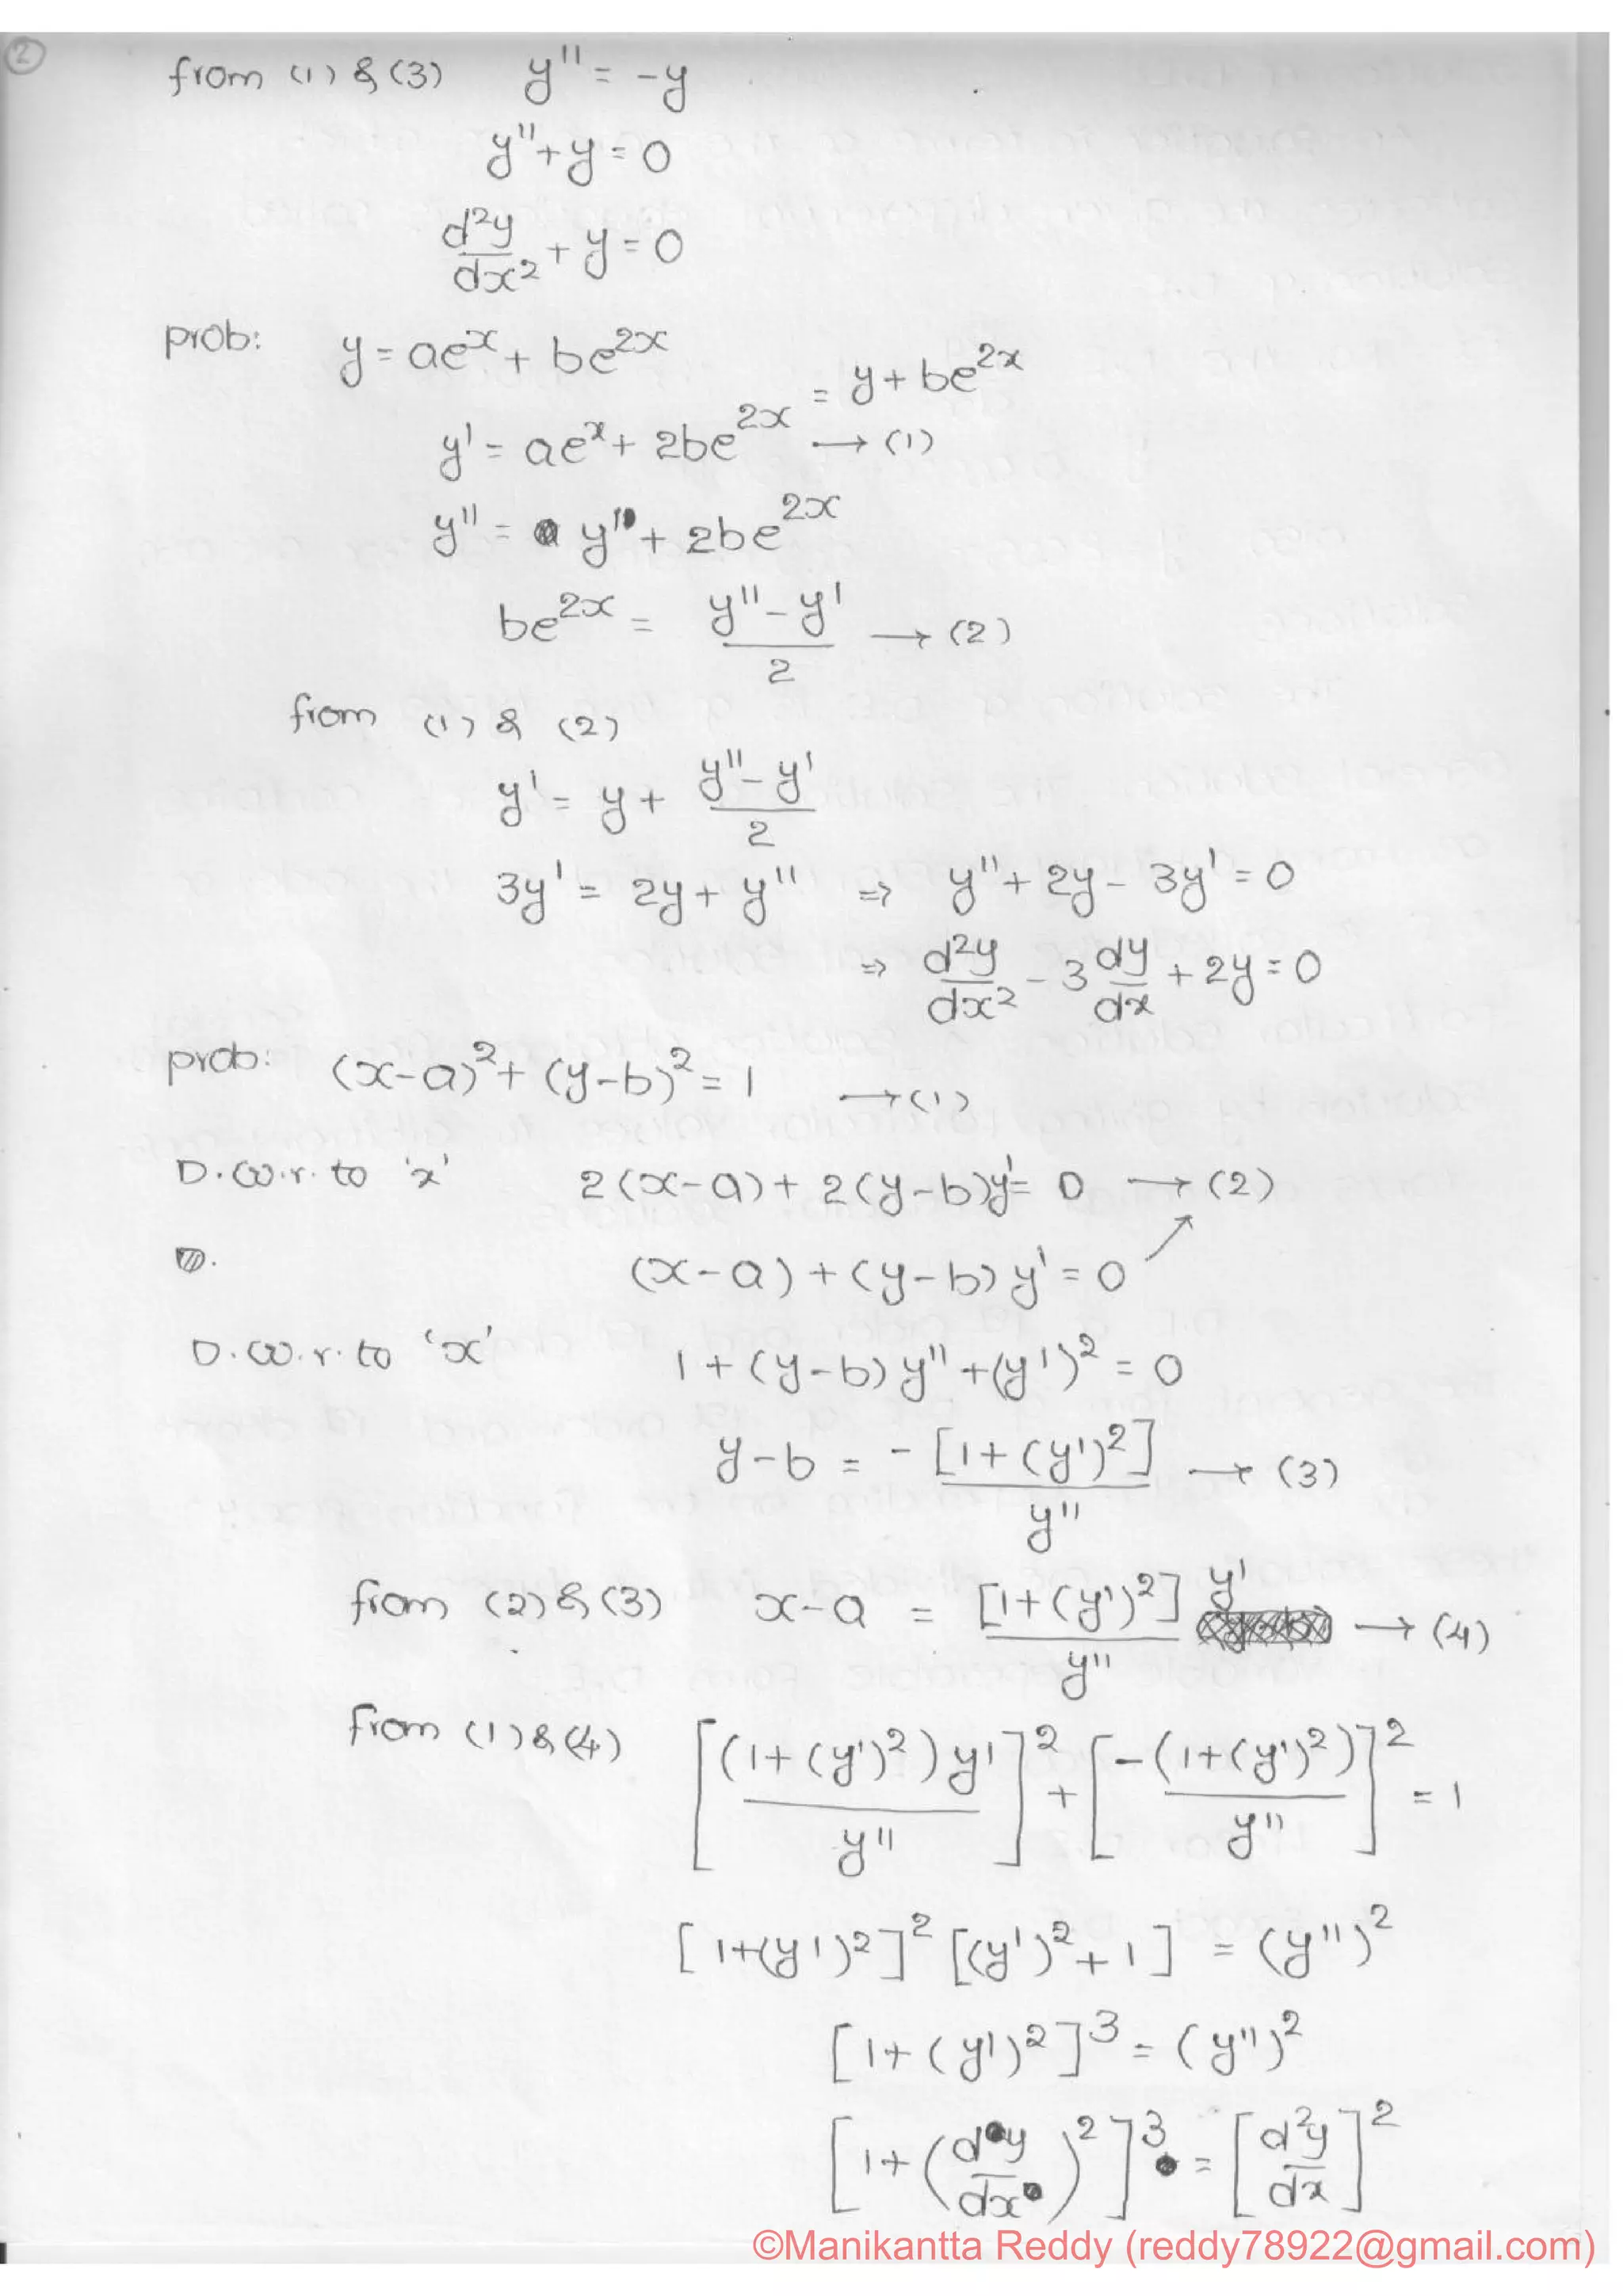 2
from (1) & (3) y'' = -y
y'' + y = 0
d²y/dx² + y = 0
prob: y = ae^x + be^2x
= y + be^2x
y' = ae^x + 2be^2x → (1)
y'' = y' + 2be^2x
be^2x = (y'' - y')/2 → (2)
from (1) & (2)
y' = y + (y'' - y')/2
3y' = 2y + y'' ⇒ y'' + 2y - 3y' = 0
⇒ d²y/dx² - 3 dy/dx + 2y = 0
prob: (x-a)² + (y-b)² = 1 → (1)
D.w.r.to 'x' 2(x-a) + 2(y-b)y' = 0 → (2)
(x-a) + (y-b) y' = 0
D.w.r.to 'x' 1 + (y-b) y'' + (y')² = 0
y-b = -[1+(y')²]/y'' → (3)
from (2) & (3) x-a = [1+(y')²]/y'' y' → (4)
from (1) & (4) [(1+(y')²)y'/y'']² + [-(1+(y')²)/y'']² = 1
[1+(y')²]² [(y')²+1] = (y'')²
[1+(y')²]³ = (y'')²
[1+(dy/dx)²]³ = [d²y/dx]²
©Manikantta Reddy (reddy78922@gmail.com)